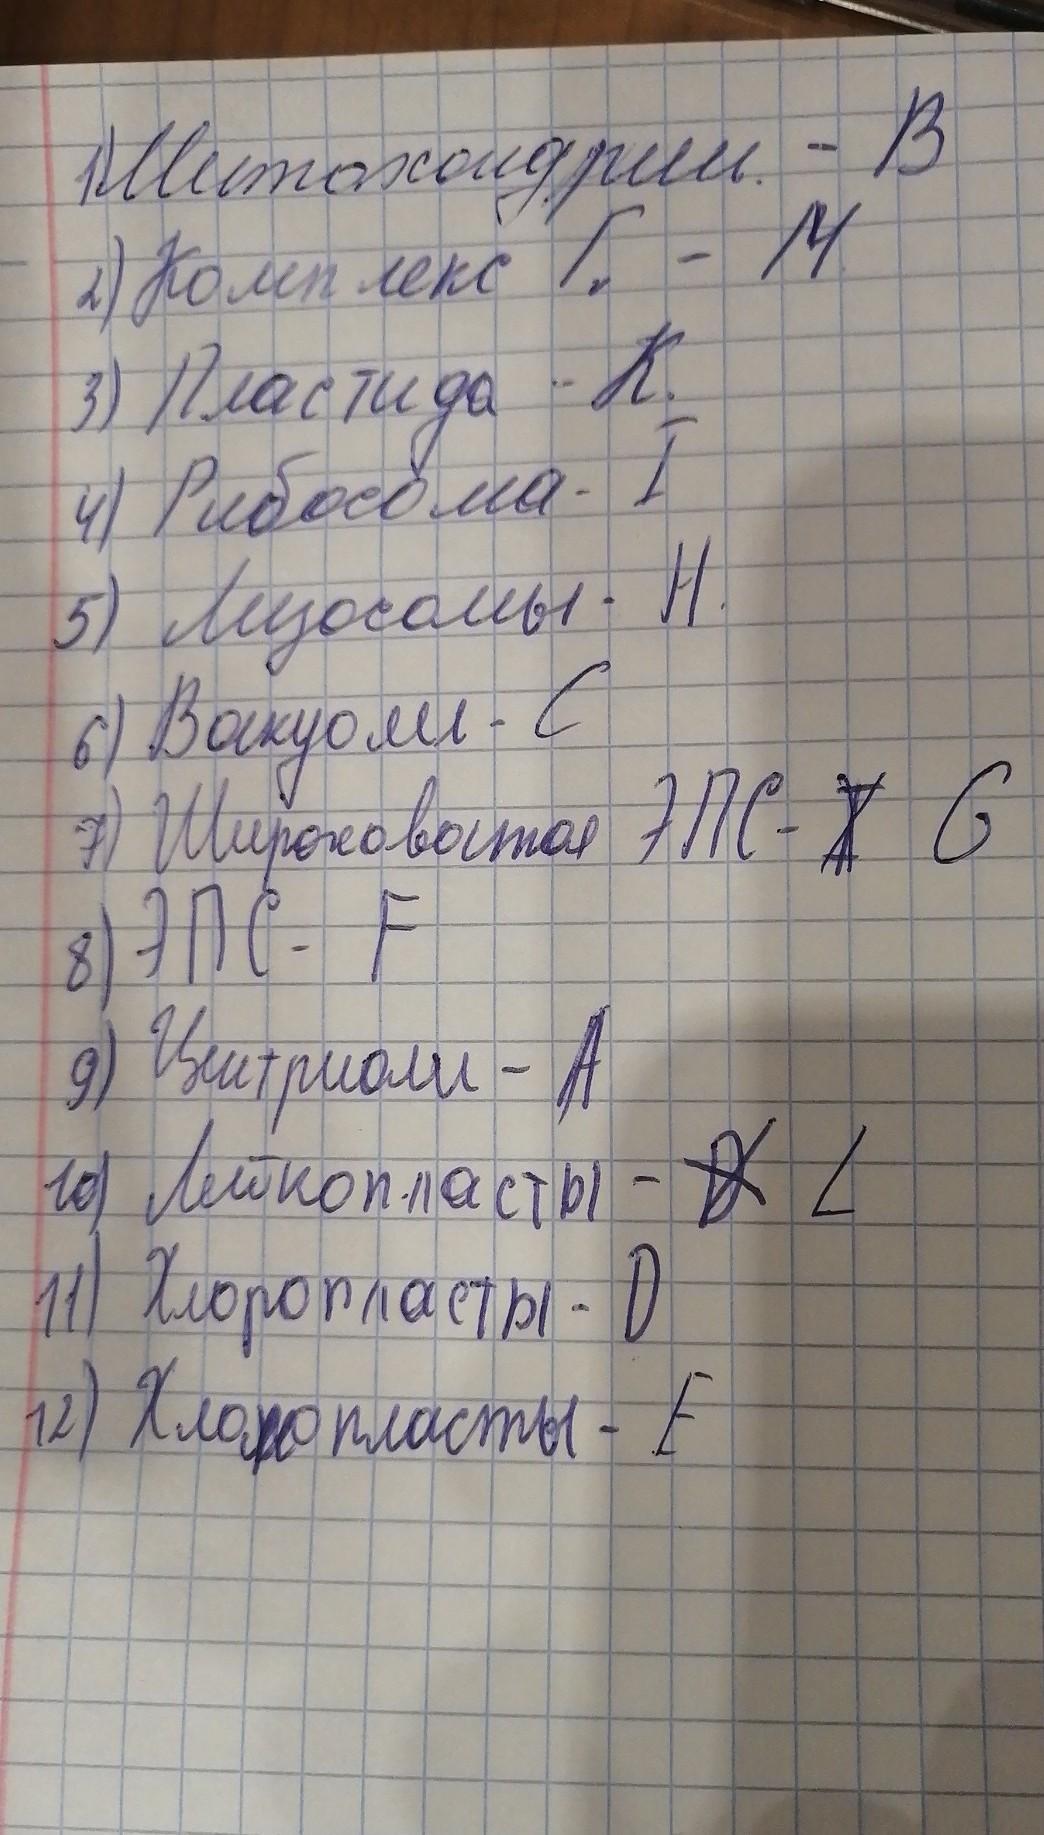 1) Митохондрии. - B
2) Комплекс Г. - M
3) Пластида - K.
4) Рибосома - I
5) Лизосомы - H.
6) Вакуоли - C
7) Широховатая ЭПС - G
8) ЭПС - F
9) Цитриоли - A
10) Лейкопласты - L
11) Хлоропласты - D
12) - E